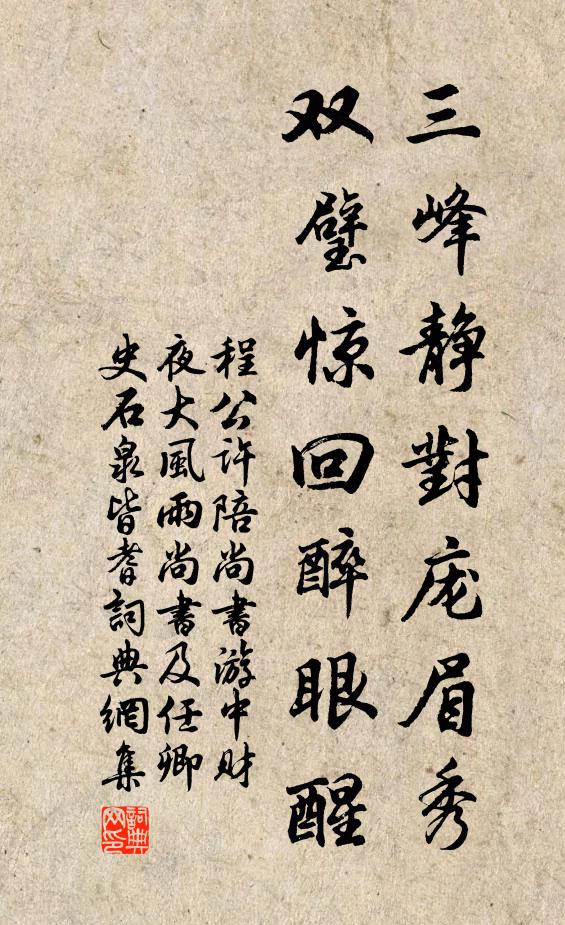 三峰静對庞眉秀
双璧惊回醉眼醒
程公许陪尚書游中财
夜大風雨尚書及任卿
史石泉皆耆詞典網集
詞典网印